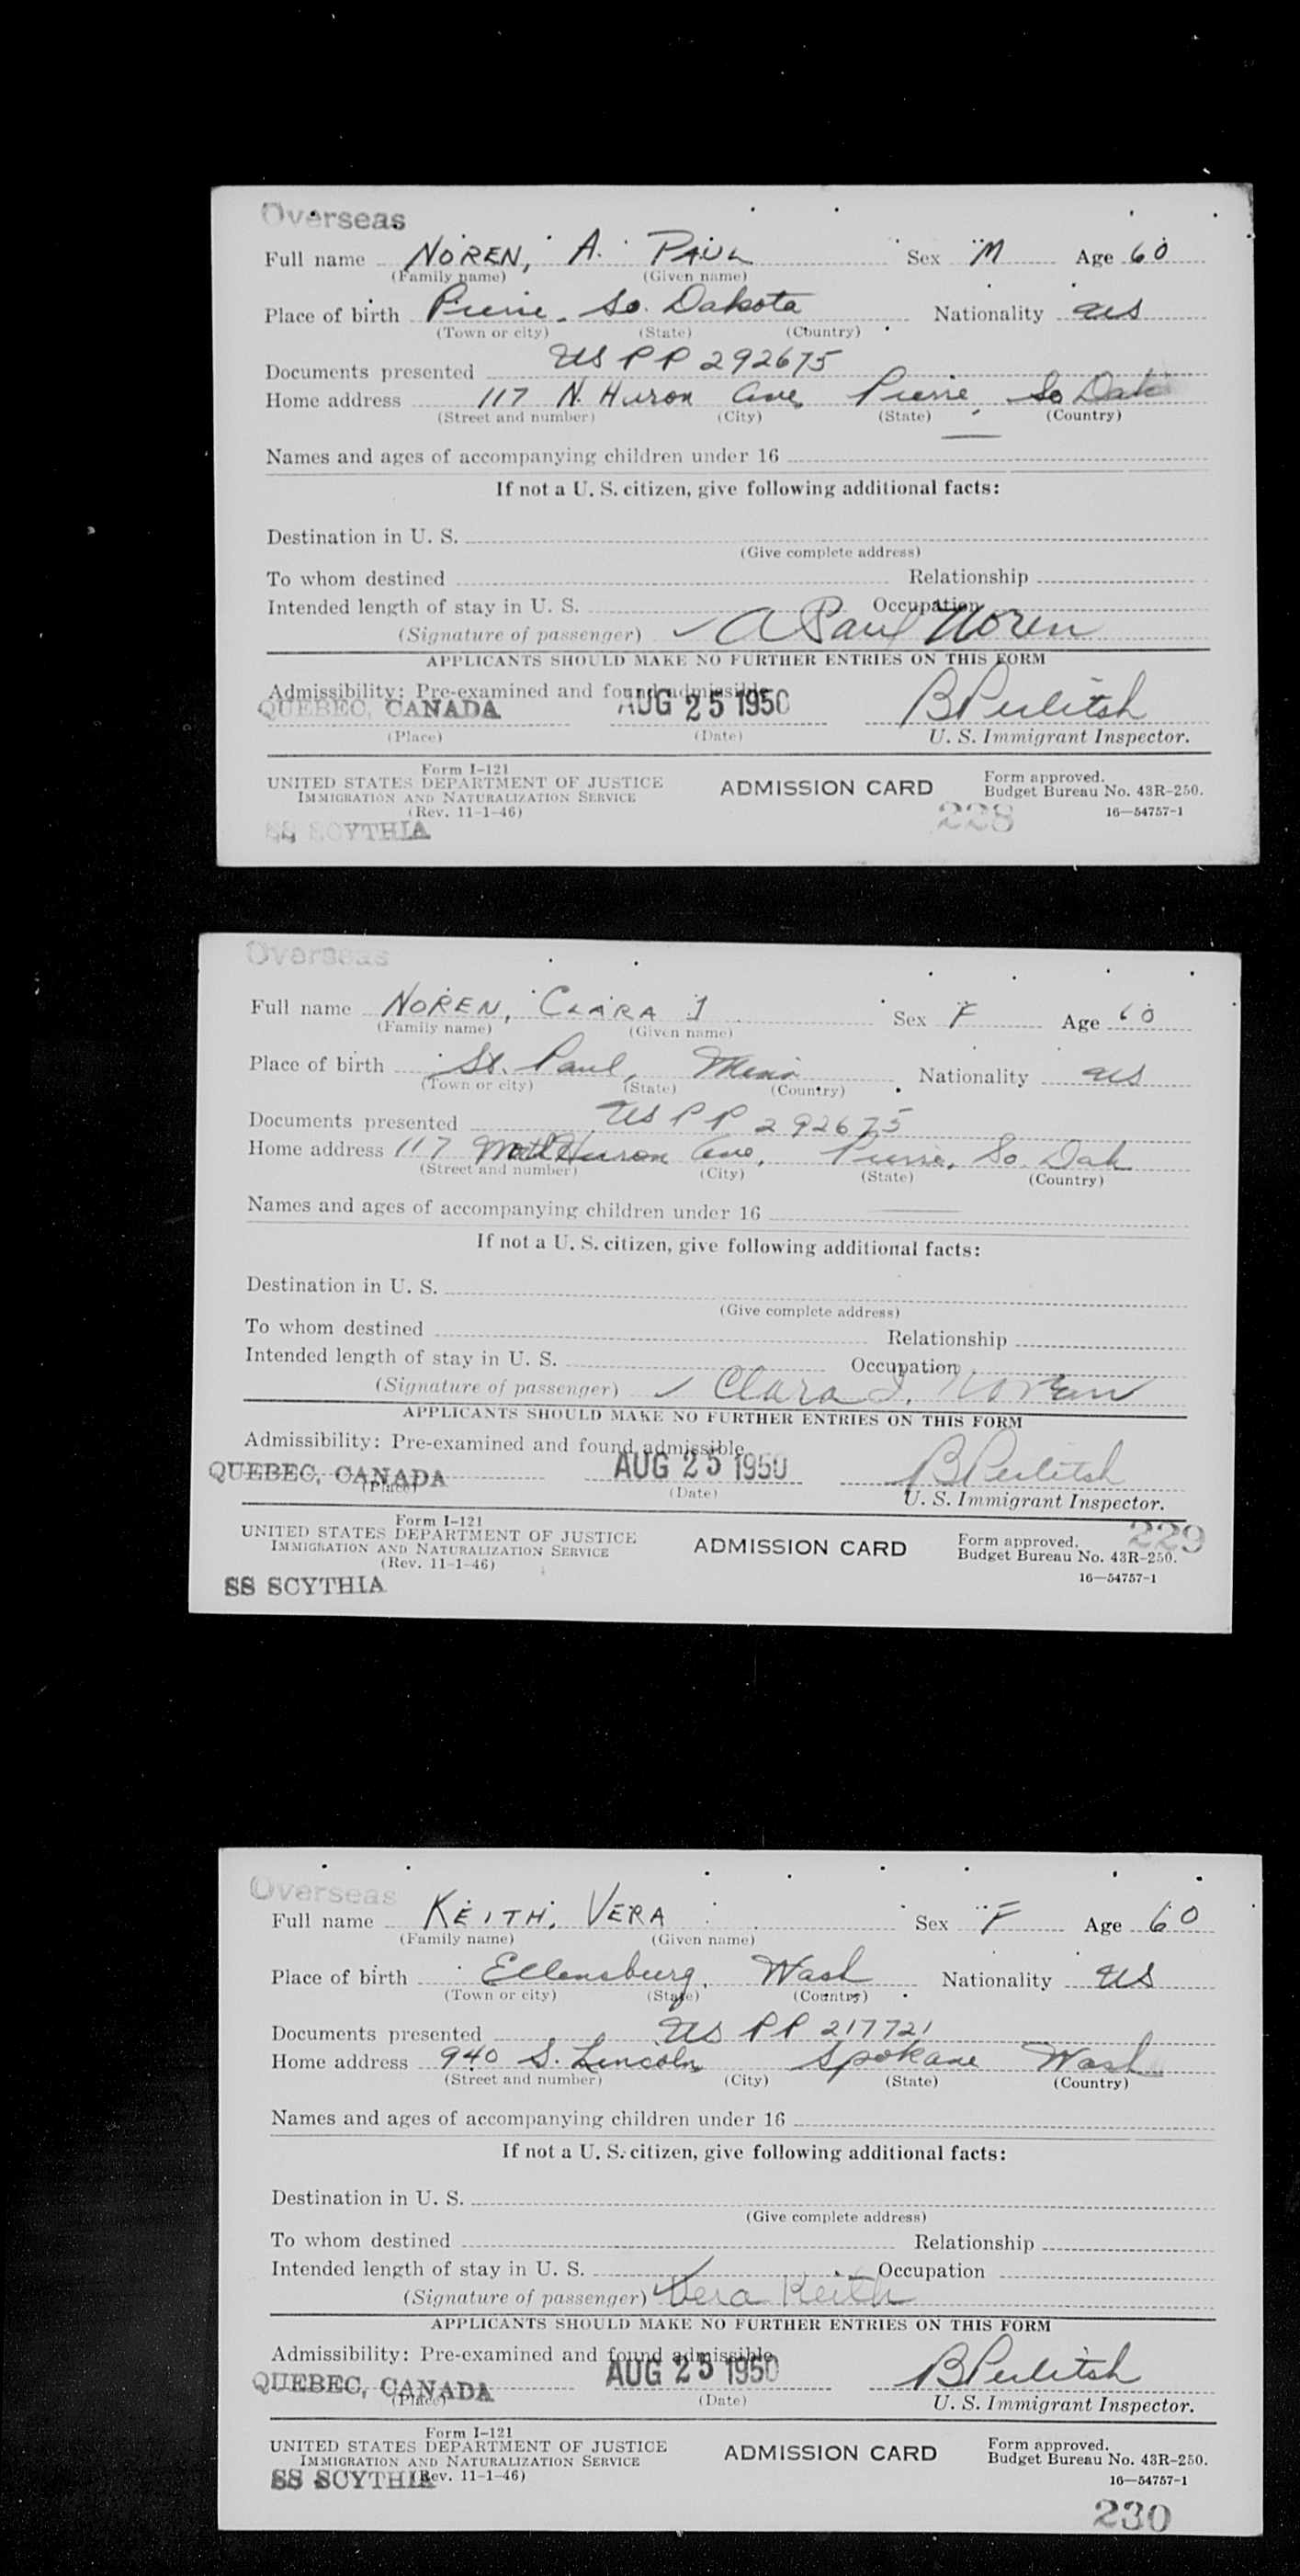 Overseas
Full name NOREN, A. PAUL Sex M Age 60
(Family name) (Given name)
Place of birth Pierre, So. Dakota Nationality US
(Town or city) (State) (Country)
Documents presented US PP 292675
Home address 117 N. Huron Ave, Pierre, So Dak
(Street and number) (City) (State) (Country)
Names and ages of accompanying children under 16
If not a U. S. citizen, give following additional facts:
Destination in U. S.
(Give complete address)
To whom destined Relationship
Intended length of stay in U. S. Occupation
(Signature of passenger) A Paul Noren
APPLICANTS SHOULD MAKE NO FURTHER ENTRIES ON THIS FORM
Admissibility: Pre-examined and found admissible
QUEBEC, CANADA AUG 25 1950
(Place) (Date) U. S. Immigrant Inspector.
Form I-121
UNITED STATES DEPARTMENT OF JUSTICE ADMISSION CARD Form approved.
IMMIGRATION AND NATURALIZATION SERVICE Budget Bureau No. 43R-250.
(Rev. 11-1-46) 16—54757-1
SS SCYTHIA 228
Overseas
Full name NOREN, CLARA I Sex F Age 60
(Family name) (Given name)
Place of birth St. Paul, Minn Nationality US
(Town or city) (State) (Country)
Documents presented US PP 292675
Home address 117 Huron Ave, Pierre, So. Dak
(Street and number) (City) (State) (Country)
Names and ages of accompanying children under 16
If not a U. S. citizen, give following additional facts:
Destination in U. S.
(Give complete address)
To whom destined Relationship
Intended length of stay in U. S. Occupation
(Signature of passenger) Clara I. Noren
APPLICANTS SHOULD MAKE NO FURTHER ENTRIES ON THIS FORM
Admissibility: Pre-examined and found admissible
QUEBEC, CANADA AUG 25 1950
(Place) (Date) U. S. Immigrant Inspector.
Form I-121 229
UNITED STATES DEPARTMENT OF JUSTICE ADMISSION CARD Form approved.
IMMIGRATION AND NATURALIZATION SERVICE Budget Bureau No. 43R-250.
(Rev. 11-1-46) 16—54757-1
SS SCYTHIA
Overseas
Full name KEITH, VERA Sex F Age 60
(Family name) (Given name)
Place of birth Ellensburg, Wash Nationality US
(Town or city) (State) (Country)
Documents presented US PP 217721
Home address 940 S. Lincoln Spokane Wash
(Street and number) (City) (State) (Country)
Names and ages of accompanying children under 16
If not a U. S. citizen, give following additional facts:
Destination in U. S.
(Give complete address)
To whom destined Relationship
Intended length of stay in U. S. Occupation
(Signature of passenger) Vera Keith
APPLICANTS SHOULD MAKE NO FURTHER ENTRIES ON THIS FORM
Admissibility: Pre-examined and found admissible
QUEBEC, CANADA AUG 25 1950
(Place) (Date) U. S. Immigrant Inspector.
Form I-121
UNITED STATES DEPARTMENT OF JUSTICE ADMISSION CARD Form approved.
IMMIGRATION AND NATURALIZATION SERVICE Budget Bureau No. 43R-250.
SS SCYTHIA (Rev. 11-1-46) 16—54757-1
230